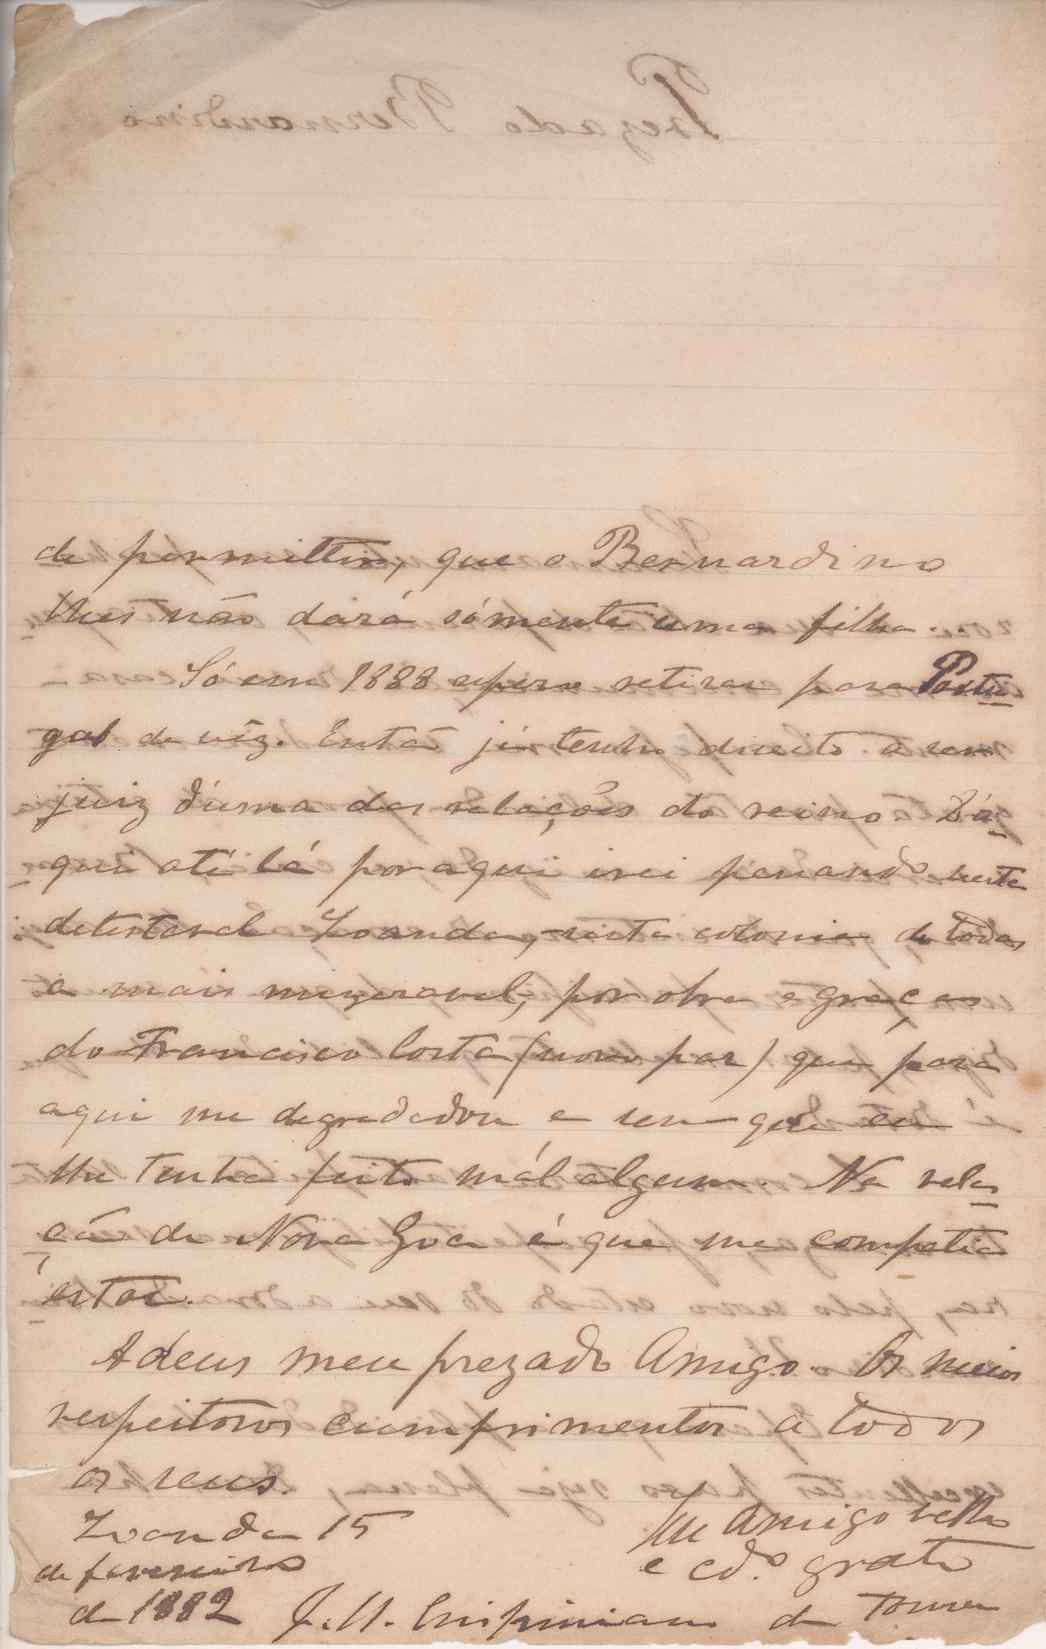 de permittir, que o Bernardino
lhes não dará sómente uma filha.
Só em 1888 espero retirar para Portu-
gal de vêz. Então já tenho direito a ser
juiz d'uma das relações do reino. D'a-
qui até lá por aqui irei penando nesta
detestavel Loanda, nesta colonia de todas
a mais mizeravel, por obra e graça
do Francisco Costa (novo par) que para
aqui me degredou e sem que eu
lhe tenha feito mál algum. Na rela-
ção de Nova Goa é que me competia
estar.
Adeus meu prezado Amigo. Os meus
respeitosos cumprimentos a todos
os seus.
Loanda 15
de fevereiro
de 1882
Seu Amigo velho
e cdo. grato
J. M. Crispiniano da